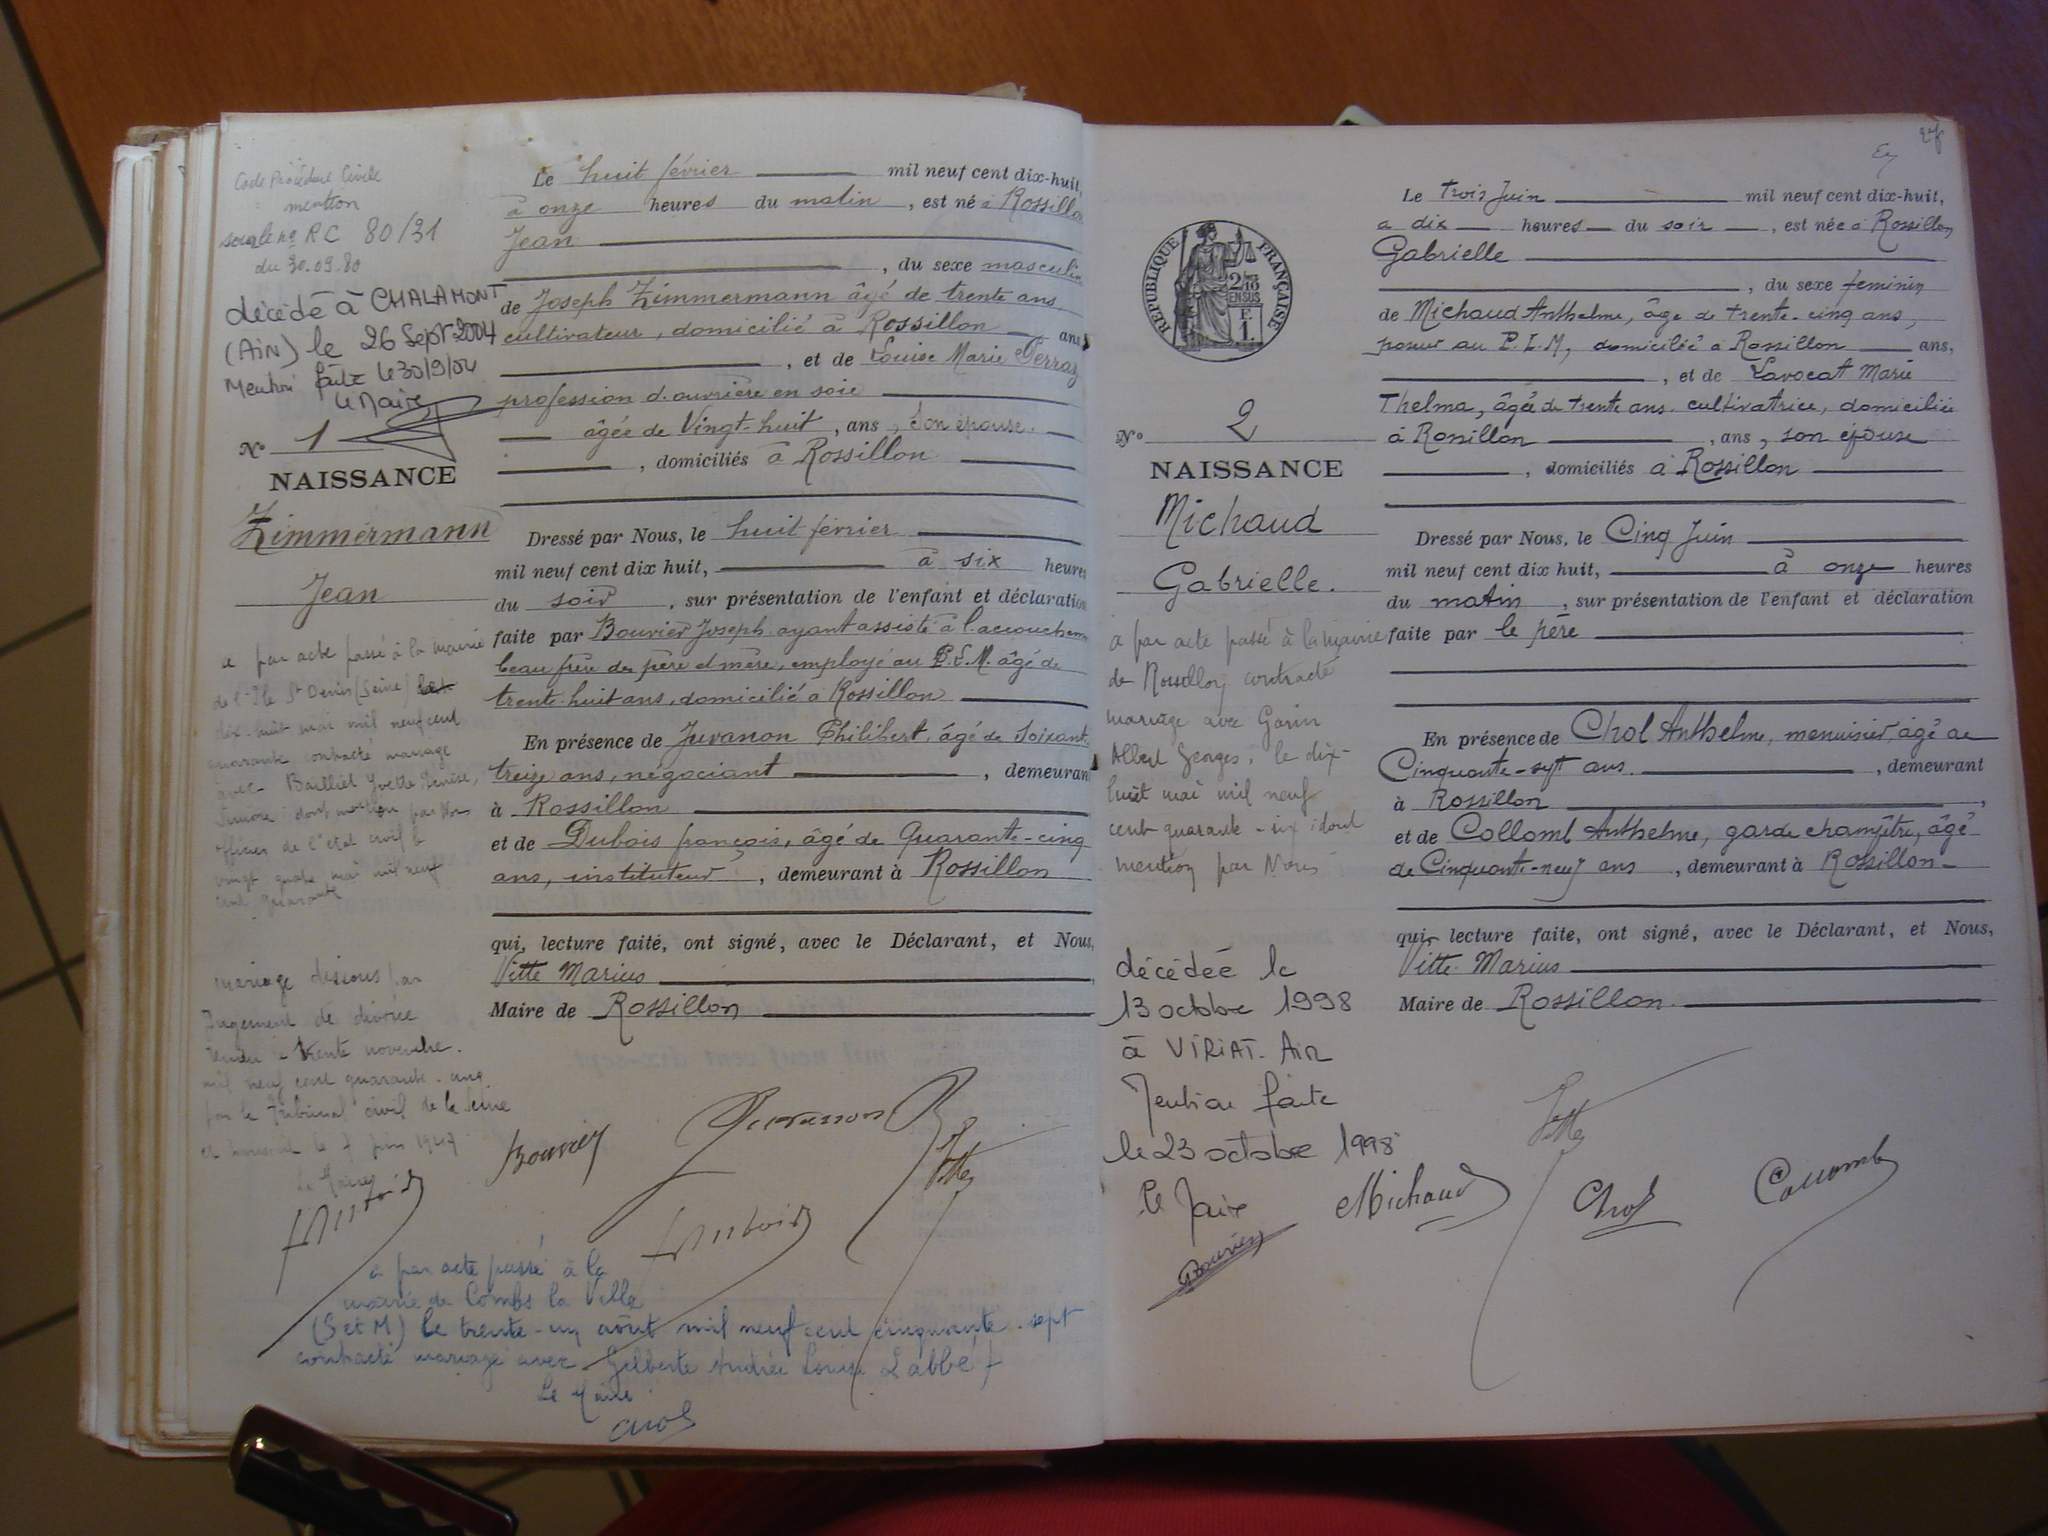 Code Procédure Civile
mention
sous le no RC 80/31
du 30.09.80
décédé à CHALAMONT
(AiN) le 26 Sept 2004
Mention faite le 30/9/04
Le Maire
No 1
NAISSANCE
Zimmermann
Jean
a par acte passé à la mairie
de l'Ile St Denis (Seine) le
dix-huit mai mil neuf cent
quarante contracté mariage
avec Bailliet Yvette
dont mention par Nous
officier de l'état civil le
vingt quatre mai mil neuf
cent quarante
mariage dissous par
Jugement de divorce
rendu le trente novembre
mil neuf cent quarante-une
par le Tribunal civil de la Seine
et le 7 juin 1947
Le Maire
Le huit février mil neuf cent dix-huit,
à onze heures du matin, est né à Rossillon
Jean
, du sexe masculin
de Joseph Zimmermann âgé de trente ans
cultivateur, domicilié à Rossillon ans
, et de Louise Marie Perraz
profession d'ouvrière en soie
âgée de Vingt-huit, ans, Son épouse.
, domiciliés à Rossillon
Dressé par Nous, le huit février
mil neuf cent dix huit, à six heures
du soir, sur présentation de l'enfant et déclaration
faite par Bouvier Joseph ayant assisté à l'accouchem
beau frère des père et mère, employé au P.L.M. âgé de
trente-huit ans, domicilié à Rossillon
En présence de Juvanon Philibert, âgé de Soixante
treize ans, négociant, demeurant
à Rossillon
et de Dubois françois, âgé de Quarante-cinq
ans, instituteur, demeurant à Rossillon
qui, lecture faite, ont signé, avec le Déclarant, et Nous,
Vitte Marius
Maire de Rossillon
Bouvier Juvanon Vitte
Dubois
a par acte passé à la
mairie de Combs la Ville
(S et M) le trente-un août mil neuf cent cinquante-sept
contracté mariage avec Gilberte Andrée Louise Labbé
Le Maire
Chol
27
RÉPUBLIQUE FRANÇAISE
2/10
EN SUS
F.
1.
No 2
NAISSANCE
Michaud
Gabrielle.
a par acte passé à la mairie
de Rossillon contracté
mariage avec Garin
Albert Georges, le dix-
huit mai mil neuf
cent quarante-six dont
mention par Nous
décédée le
13 octobre 1998
à VIRIAT-Ain
Mention faite
le 23 octobre 1998
Le Maire
Bouvier
Le trois Juin mil neuf cent dix-huit,
a dix heures du soir, est née à Rossillon
Gabrielle
, du sexe feminin
de Michaud Anthelme, âge de trente-cinq ans,
poseur au P.L.M, domicilié a Rossillon ans,
, et de Lavocat Marie
Thelma, âgée de trente ans cultivatrice, domiciliée
à Rossillon, ans, son épouse
, domiciliés à Rossillon
Dressé par Nous, le Cinq Juin
mil neuf cent dix huit, à onze heures
du matin, sur présentation de l'enfant et déclaration
faite par le père
En présence de Chol Anthelme, menuisier, âgé de
Cinquante-sept ans, demeurant
à Rossillon,
et de Collomb Anthelme, garde champêtre, âgé
de Cinquante-neuf ans, demeurant à Rossillon
qui, lecture faite, ont signé, avec le Déclarant, et Nous,
Vitte Marius
Maire de Rossillon
Vitte
Michaud Chol Collomb